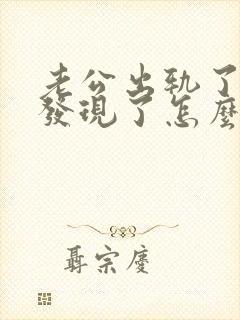 老公出轨了
發現了怎麼
聶宗慶